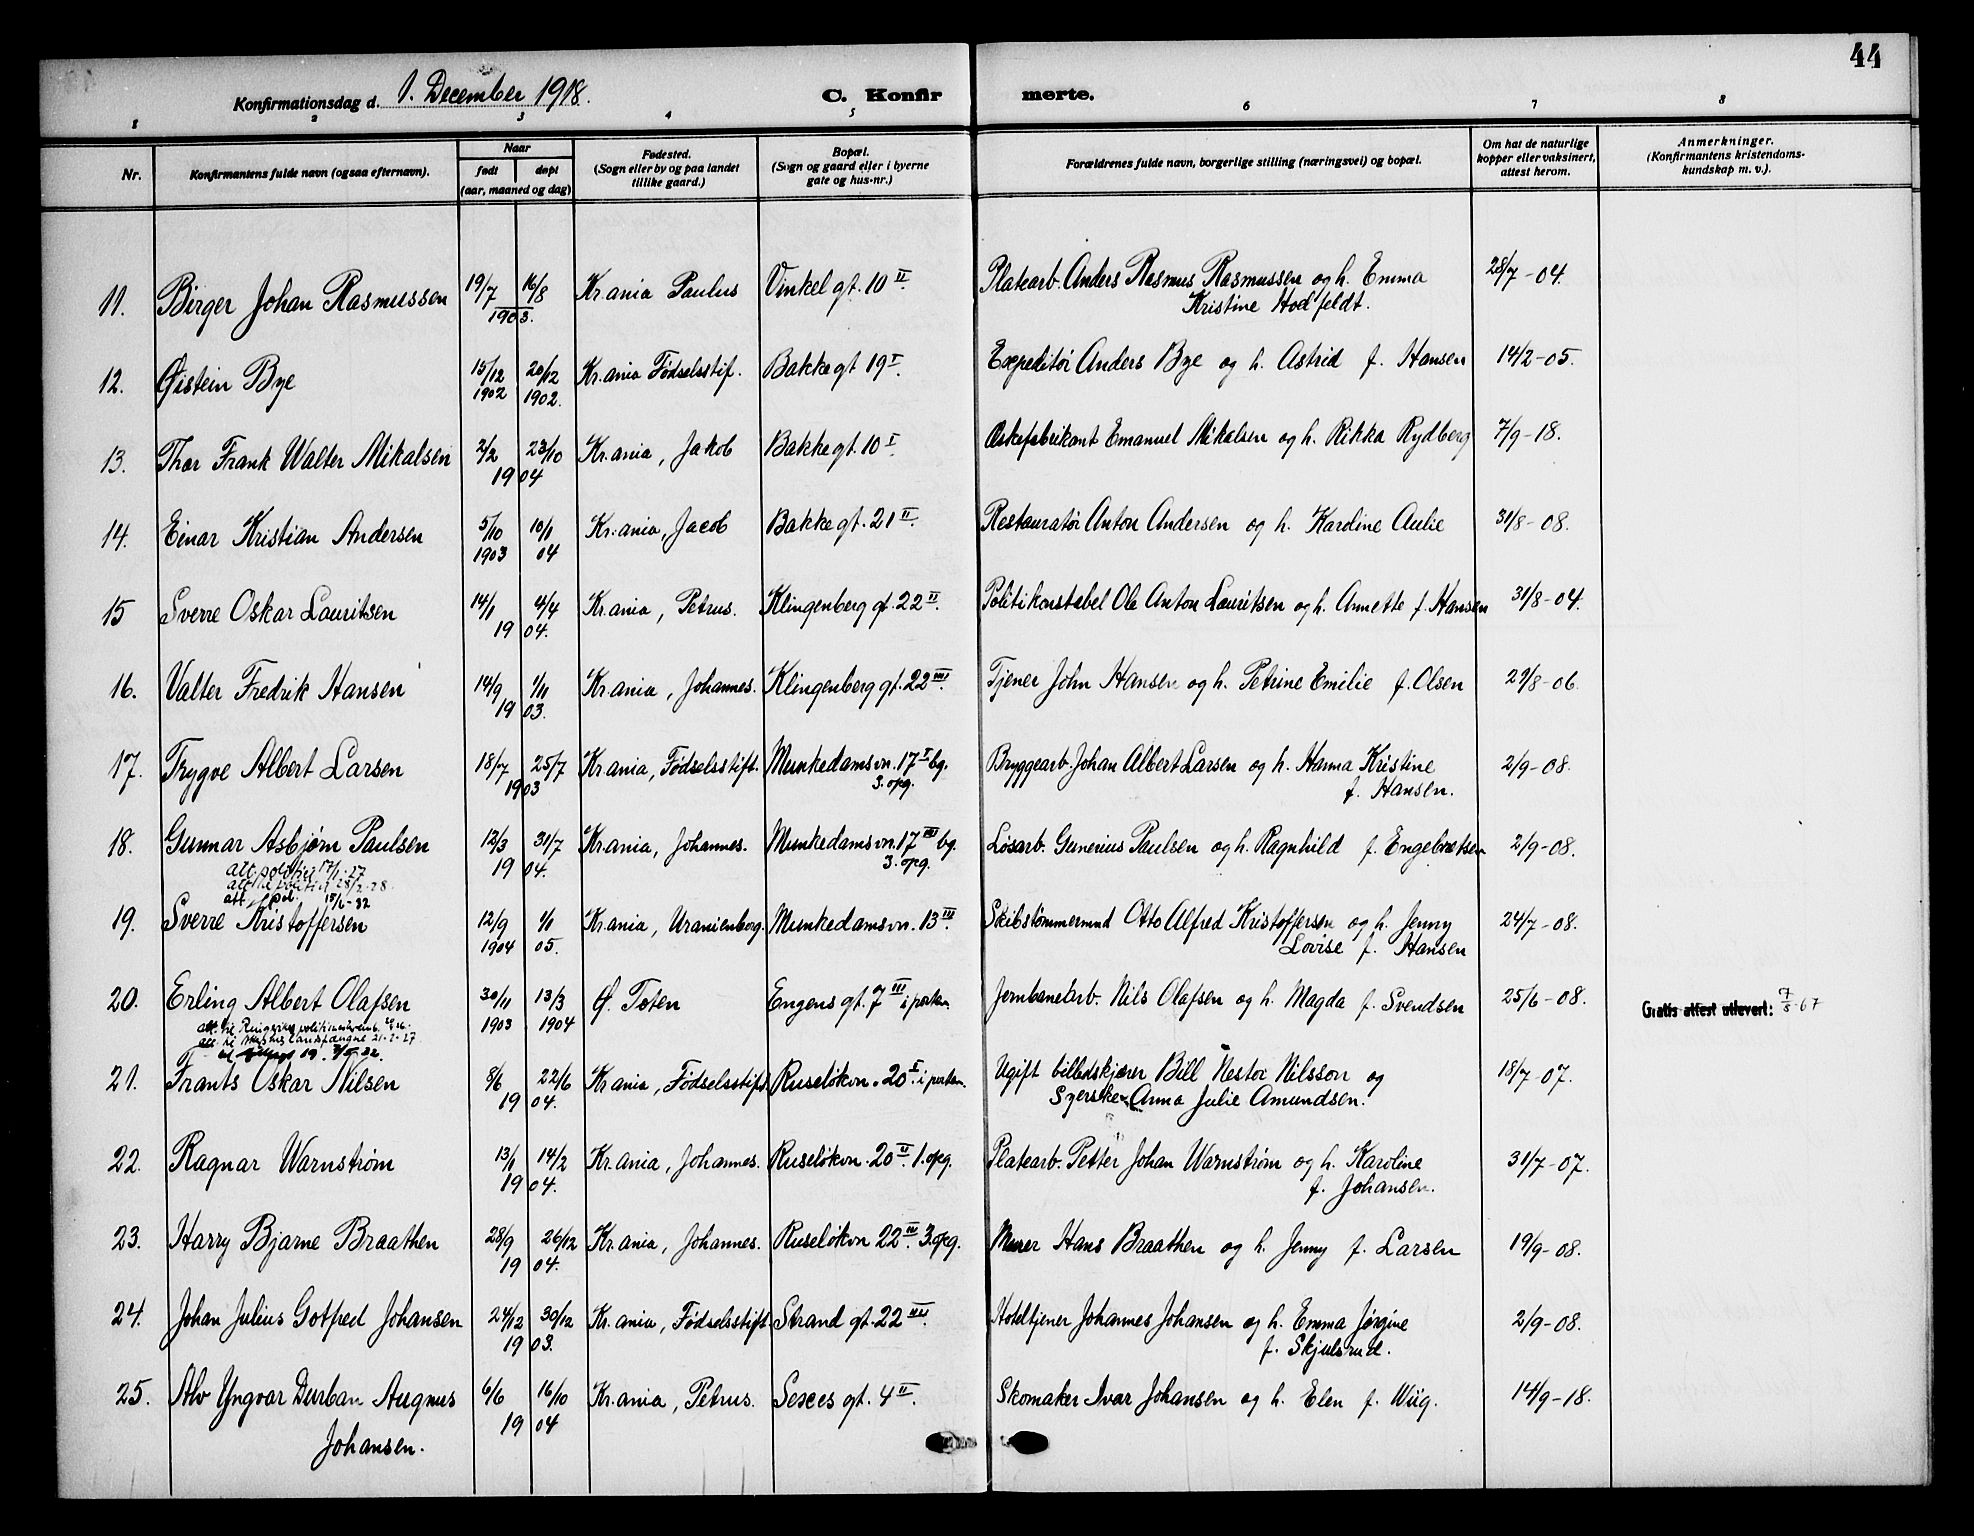 44
Konfirmationsdag d. 1. December 1918. C. Konfir merte.
1 2 3 4 5 6 7 8
Nr. Konfirmantens fulde navn (ogsaa efternavn). Naar født døpt (aar, maaned og dag) Fødested. (Sogn eller by og paa landet tillike gaard.) Bopæl. (Sogn og gaard eller i byerne gate og hus-nr.) Forældrenes fulde navn, borgerlige stilling (næringsvei) og bopæl. Om hat de naturlige kopper eller vaksinert, attest herom. Anmerkninger. (Konfirmantens kristendoms-kundskap m. v.).
11. Birger Johan Rasmussen 19/7 16/8 Kr.ania Paulus Vinkel gt. 10 II. Platearb. Anders Rasmus Rasmussen og h. Emma 28/7-04.
1903. Kristine Hodfeldt.
12. Øistein Bye 15/12 20/12 Kr.ania Fødselsstif. Bakkegt 19 I. Expeditør Anders Bye og h. Astrid f. Hansen 14/2-05.
1902 1902.
13. Thor Frank Walter Mikalsen 2/2 23/10 Kr.ania, Jakob Bakkegt. 10 I. Æskefabrikant Emanuel Mikalsen og h. Rikka Rydberg 7/9-18.
19 04
14. Einar Kristian Andersen 5/10 10/1 Kr.ania, Jacob Bakkegt. 21 II. Restauratør Anton Andersen og h. Karoline Aulie 31/8-08.
1903 04
15 Sverre Oskar Lauritsen 14/1 4/4 Kr.ania, Petrus. Klingenberg gt. 22 II. Politikonstabel Ole Anton Lauritsen og h. Annette f. Hansen 31/8-04.
19 04.
16. Valter Fredrik Hansen 14/9 1/11 Kr.ania, Johannes. Klingenberg gt. 22 III. Tjener John Hansen og h. Petrine Emilie f. Olsen 29/8-06.
19 03.
17. Trygve Albert Larsen 18/7 25/7 Kr.ania, Fødselsstift. Munkedamsvn. 17 I bg. Bryggearb. Johan Albert Larsen og h. Hanna Kristine 2/9-08.
1903 3. opg. f. Hansen.
18. Gunnar Asbjørn Paulsen 12/3 31/7 Kr.ania, Johannes. Munkedamsvn. 17 III bg. Løsarb. Gunerius Paulsen og h. Ragnhild f. Engebretsen 2/9-08.
19 04. 3. opg.
att. politiet 17/1-27
att. til politiet 28/2-28.
att. pol. 15/6-32
19. Sverre Kristoffersen 12/9 1/1 Kr.ania, Uranienborg. Munkedamsvn. 13 III. Skibstømmermand Otto Alfred Kristoffersen og h. Jenny 24/7-08.
1904 05. Lovise f. Hansen
20. Erling Albert Olafsen 30/11 13/3 Ø. Toten Engens gt. 7 III i portn. Jernbanearb. Nils Olafsen og h. Magda f. Svendsen 25/6-08.
1903 1904 Gratis attest utlevert: 7/5-67
att. til landsfængsel 21-2-27
21. Frants Oskar Nilsen 8/6 22/6 Kr.ania, Fødselsstift Ruseløkvn. 20 I. i portn. Ugift billedskjærer Bill Nestor Nilsson og 18/7-07.
19 04. Syerske Anna Julie Amundsen.
22. Ragnar Warnstrøm 13/1 14/2 Kr.ania, Johannes. Ruseløkvn. 20 II. 1. opg. Platearb. Petter Johan Warnstrøm og h. Karoline 31/7-07.
19 04. f. Johansen.
23. Harry Bjarne Braathen 28/9 26/12 Kr.ania, Johannes. Ruseløkvn 22 III. 3. opg. Murer Hans Braathen og h. Jenny f. Larsen 19/9-08.
19 04.
24. Johan Julius Gotfred Johansen 24/12 30/12 Kr.ania, Fødselsstift Strand gt. 22 III. Hoteltjener Johannes Johansen og h. Emma Jørgine 2/9-08.
19 03. f. Skjulsrud.
25. Alv Yngvar Durban Augnus 6/6 16/10 Kr.ania, Petrus. Sexes gt. 4 II. Skomaker Ivar Johansen og h. Elen f. Wiig. 14/9-18.
Johansen. 19 04